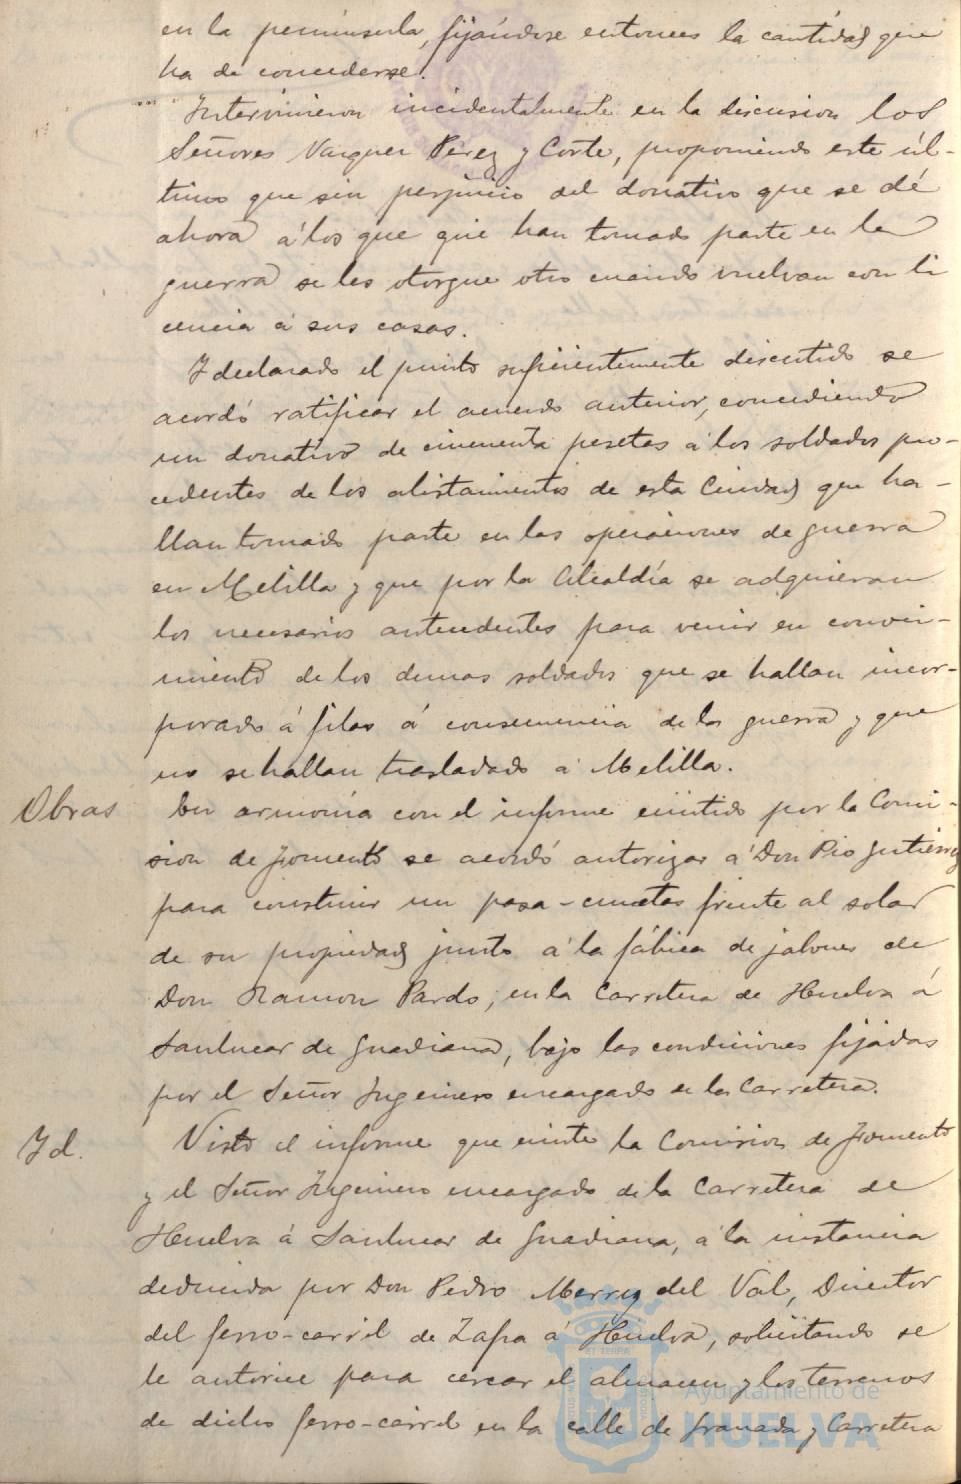 en la peninsula, fijándose entonces la cantidad que
ha de concederse.
Intervinieron incidentalmente en la discusion los
Señores Vazquez Perez y Corte, proponiendo este úl-
timo que sin perjuicio del donativo que se dé
ahora á los que que han tomado parte en la
guerra se les otorgue otro cuando vuelvan con li
cencia á sus casas.
Y declarado el punto suficientemente discutido se
acordó ratificar el acuerdo anterior, concediendo
un donativo de cincuenta pesetas á los soldados pro-
cedentes de los alistamientos de esta Ciudad que ha-
llan tomado parte en las operaciones de guerra
en Melilla y que por la Alcaldía se adquieran
los necesarios antecedentes para venir en conoci-
miento de los demas soldados que se hallan incor-
porado á filas á consecuencia de la guerra y que
no se hallan trasladado á Melilla.
Obras En armonía con el informe emitido por la Comi-
sion de Fomento se acordó autorizar á Don Pio Gutierrez
para construir un pasa-cunetas frente al solar
de su propiedad junto á la fábrica de jabones de
Don Ramon Pardo, en la Carretera de Huelva á
Sanlucar de Guadiana, bajo las condiciones fijadas
por el Señor Ingeniero encargado en la Carretera.
Id. Visto el informe que emite la Comision de Fomento
y el Señor Ingeniero encargado de la Carretera de
Huelva á Sanlucar de Guadiana, á la instancia
deducida por Don Pedro Merry del Val, Director
del ferro-carril de Zafra á Huelva, solicitando se
le autorice para cercar el almacen y los terrenos
de dicho ferro-carril en la calle de Granada y Carretera
Ayuntamiento de
HUELVA